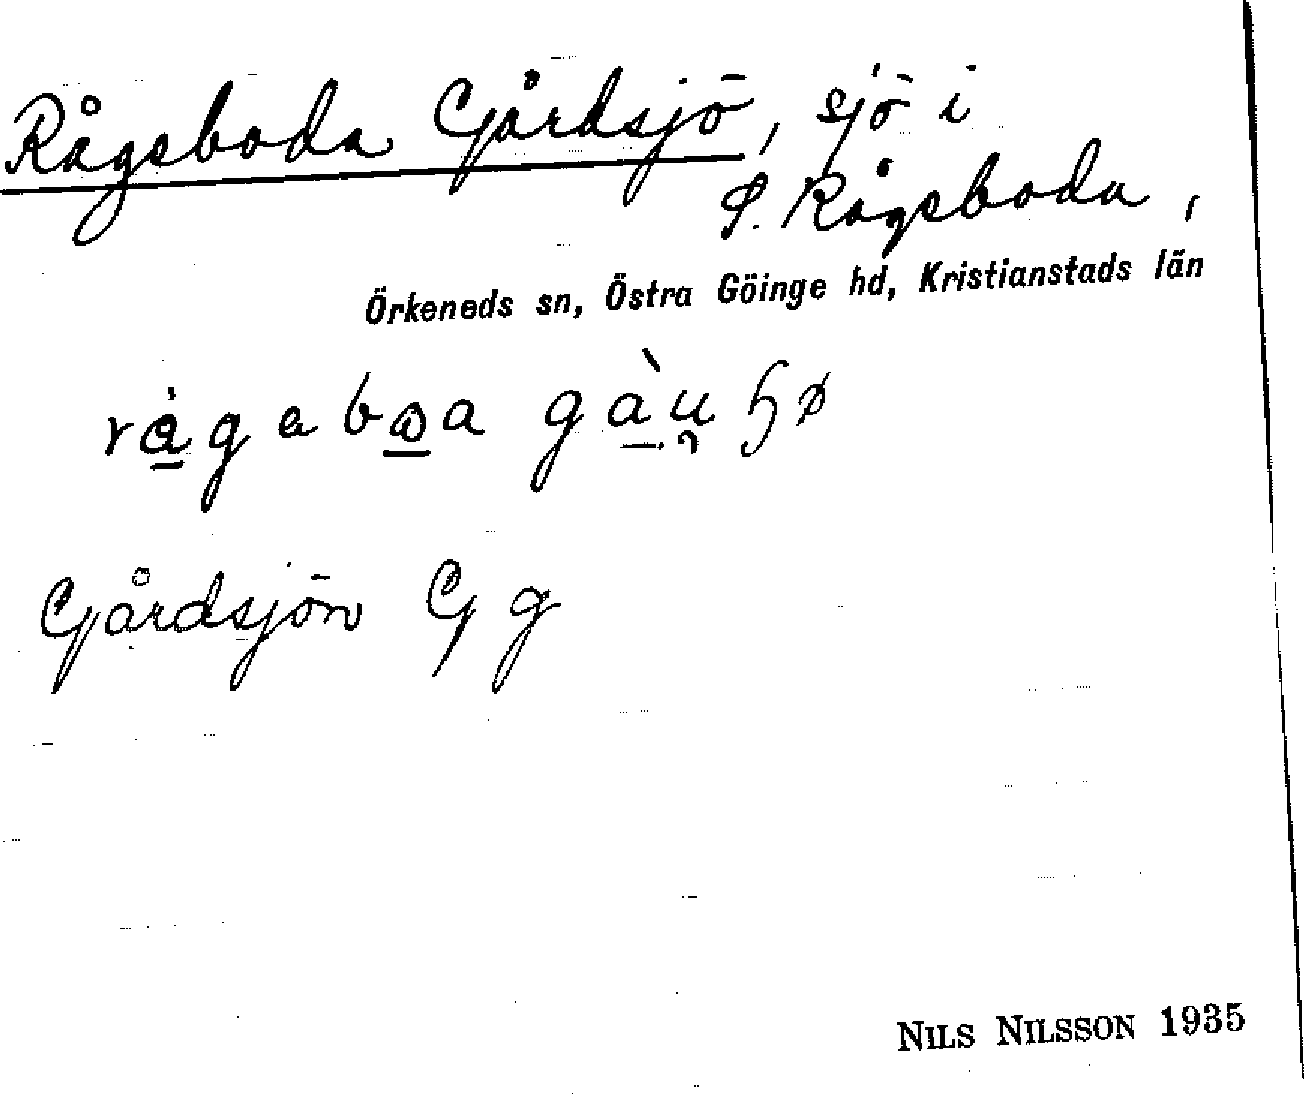 Rågeboda Gårdsjö, sjö i
S. Rågeboda,
Örkeneds sn, Östra Göinge hd, Kristianstads län
Gårdsjön Gg
NILS NILSSON 1935